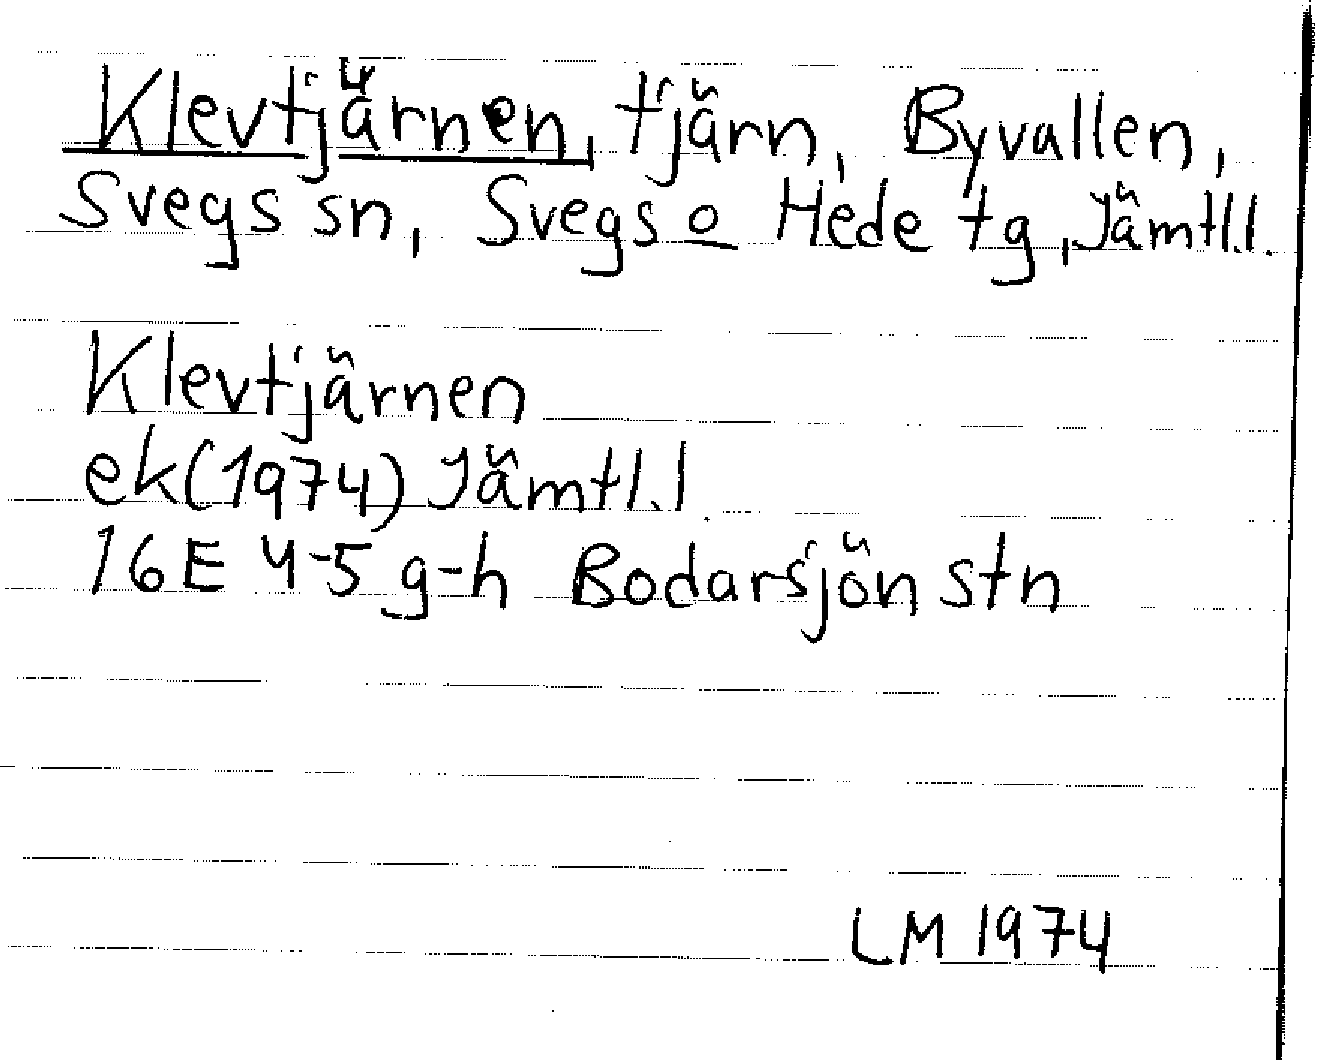 Klevtjärnen, tjärn, Byvallen,
Svegs sn, Svegs o Hede tg, Jämtl.l.
Klevtjärnen
ek(1974) Jämtl.l.
16E 4-5 g-h Bodarsjön stn
LM 1974